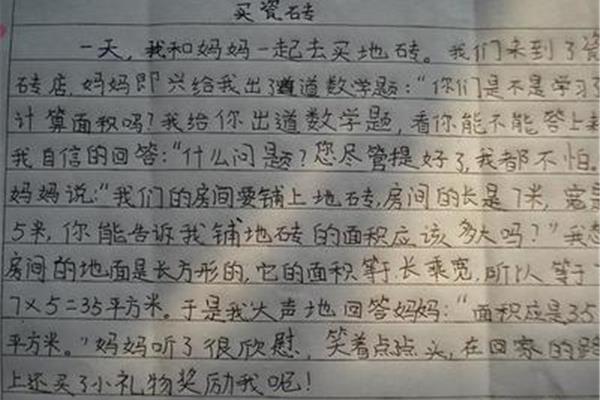 买瓷砖
一天，我和妈妈一起去买地砖。我们来到了瓷
砖店，妈妈即兴给我出了道数学题：“你们是不是学习了
计算面积吗？我给你出道数学题，看你能不能答上来
我自信的回答：“什么问题？您尽管提好了，我都不怕。
妈妈说：“我们的房间要铺上地砖，房间的长是7米，宽是
5米，你能告诉我铺地砖的面积应该多大吗？”我想
房间的地面是长方形的，它的面积等于长乘宽，所以等于
7×5=35平方米。于是我大声地回答妈妈：“面积应是35
平方米。”妈妈听了很欣慰，笑着点点头，在回家的路
上还买了小礼物奖励我呢！